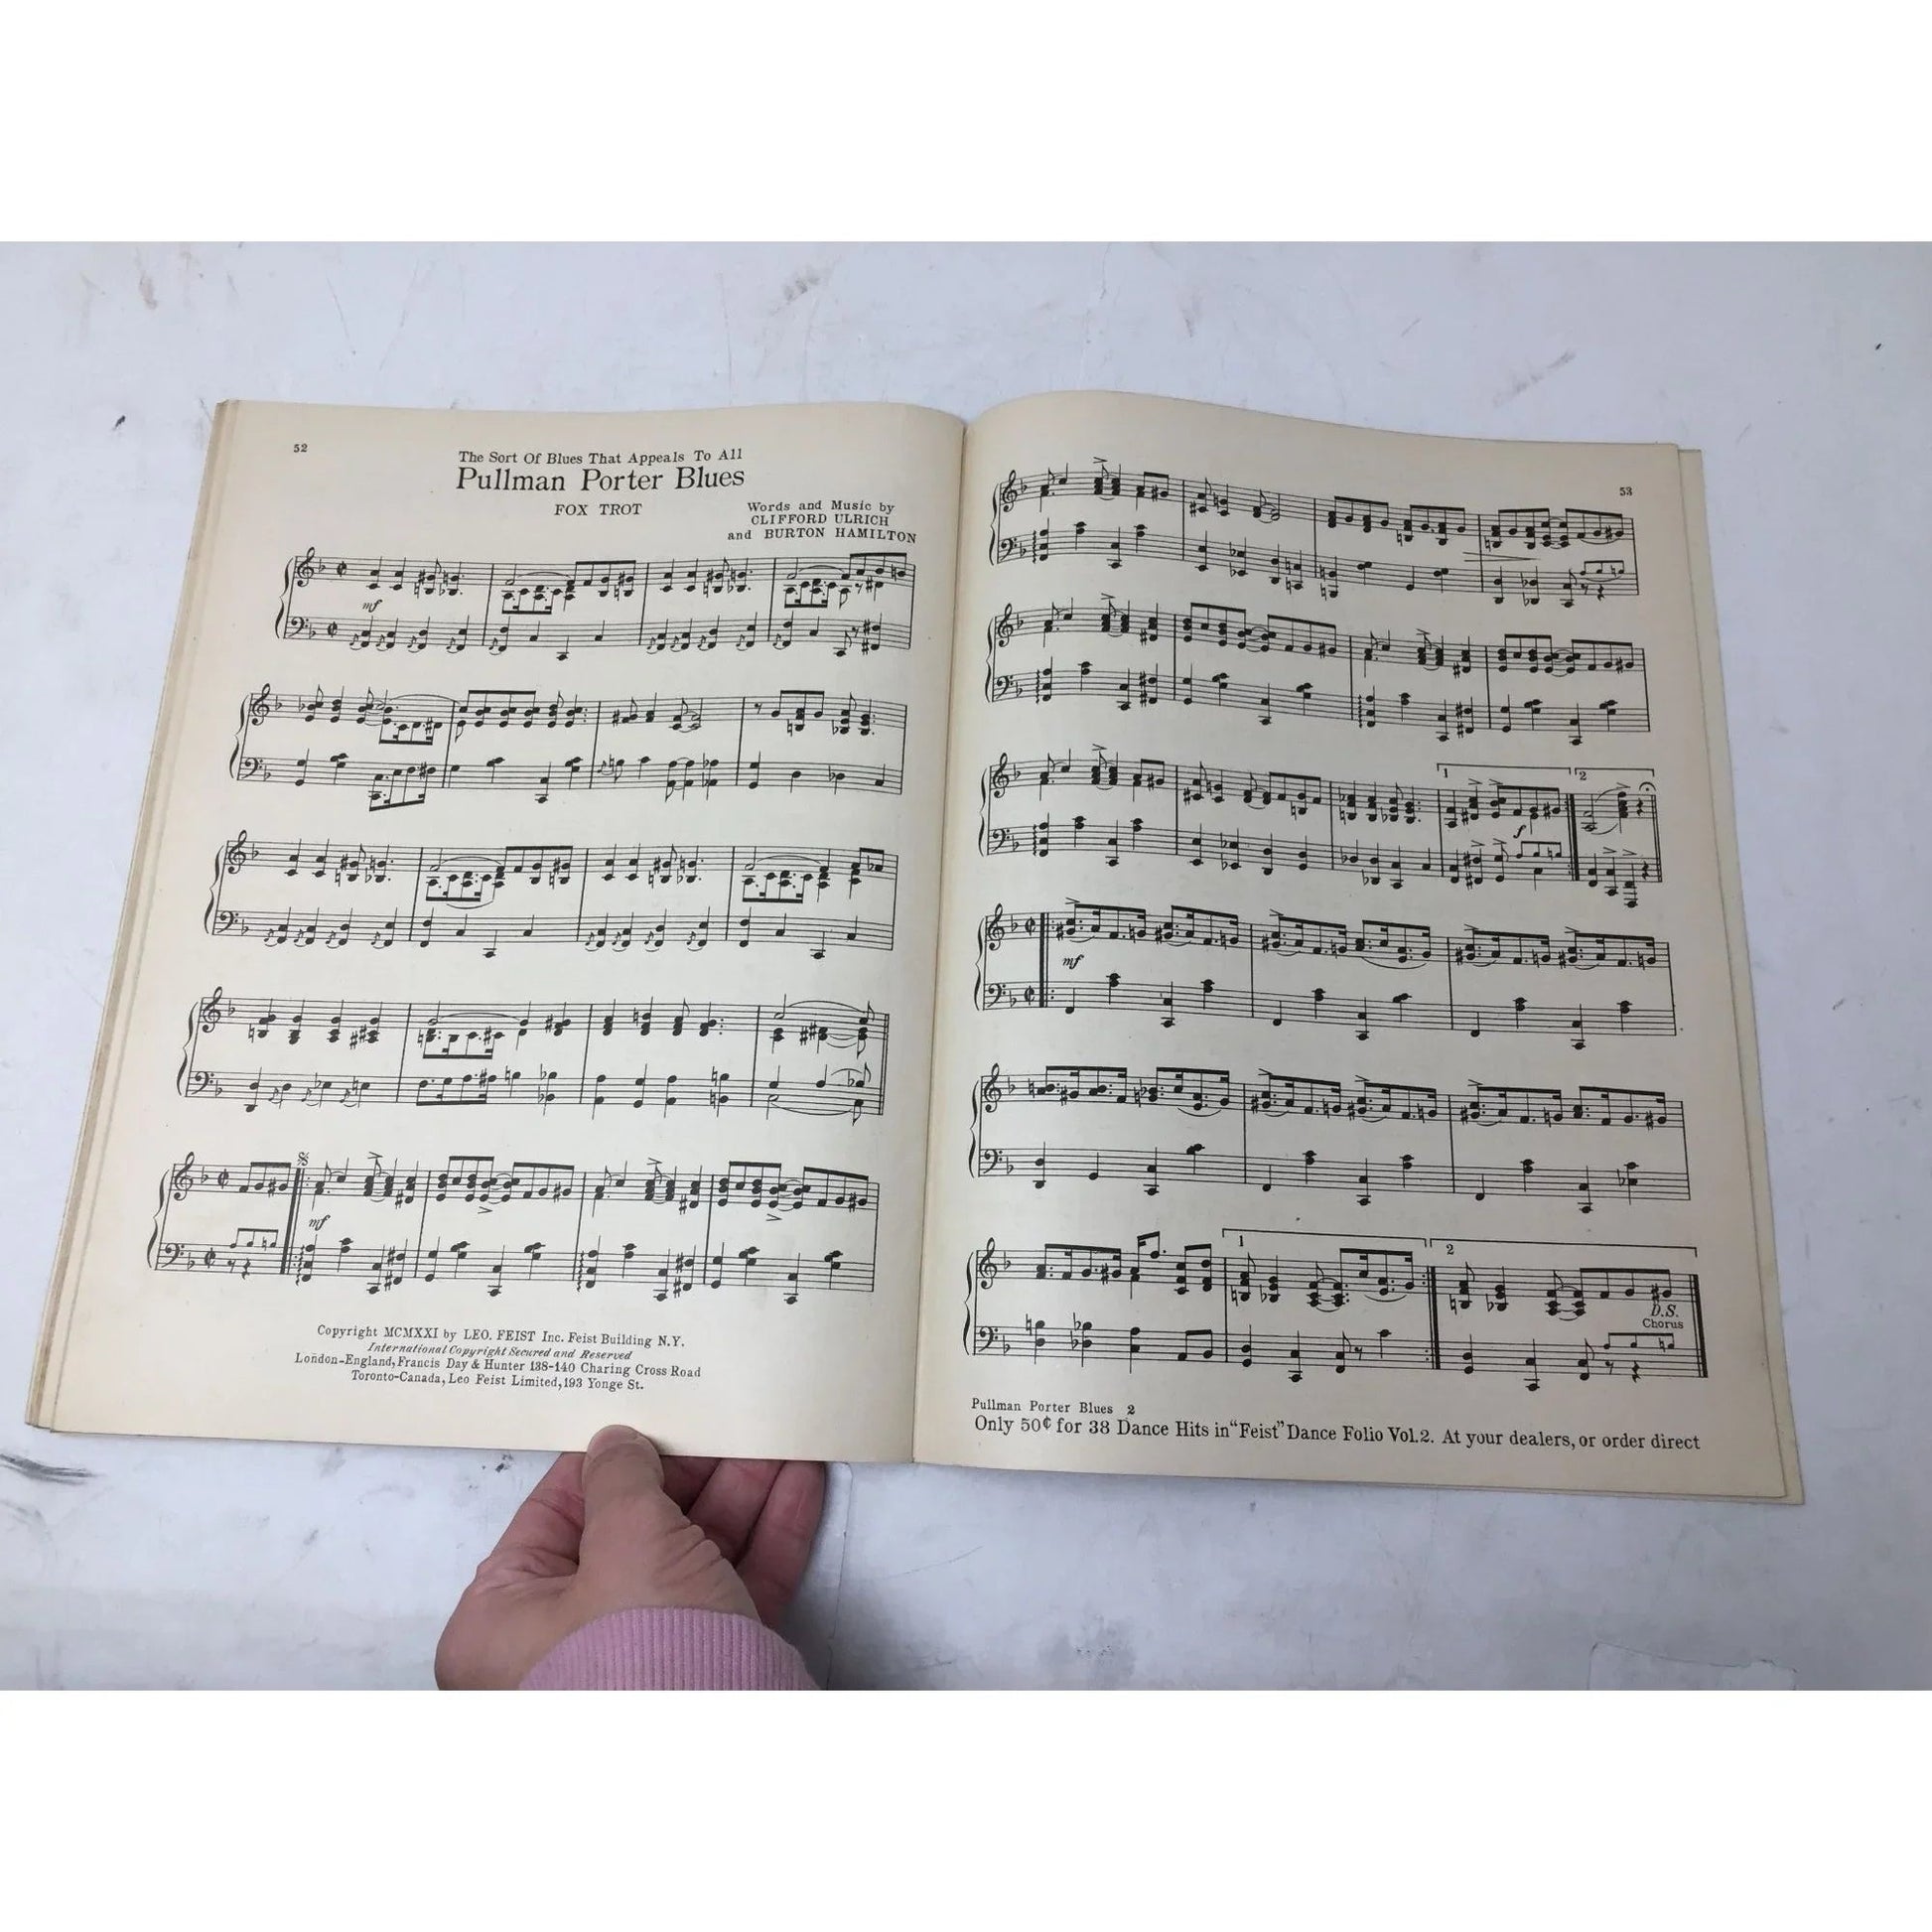 52
The Sort Of Blues That Appeals To All
Pullman Porter Blues
FOX TROT
Words and Music by
CLIFFORD ULRICH
and BURTON HAMILTON
mf
mf
Copyright MCMXXI by LEO. FEIST Inc. Feist Building N.Y.
International Copyright Secured and Reserved
London-England, Francis Day & Hunter 138-140 Charing Cross Road
Toronto-Canada, Leo Feist Limited, 193 Yonge St.
53
1 2
f
mf
1 2
D.S.
Chorus
Pullman Porter Blues 2
Only 50¢ for 38 Dance Hits in "Feist" Dance Folio Vol.2. At your dealers, or order direct